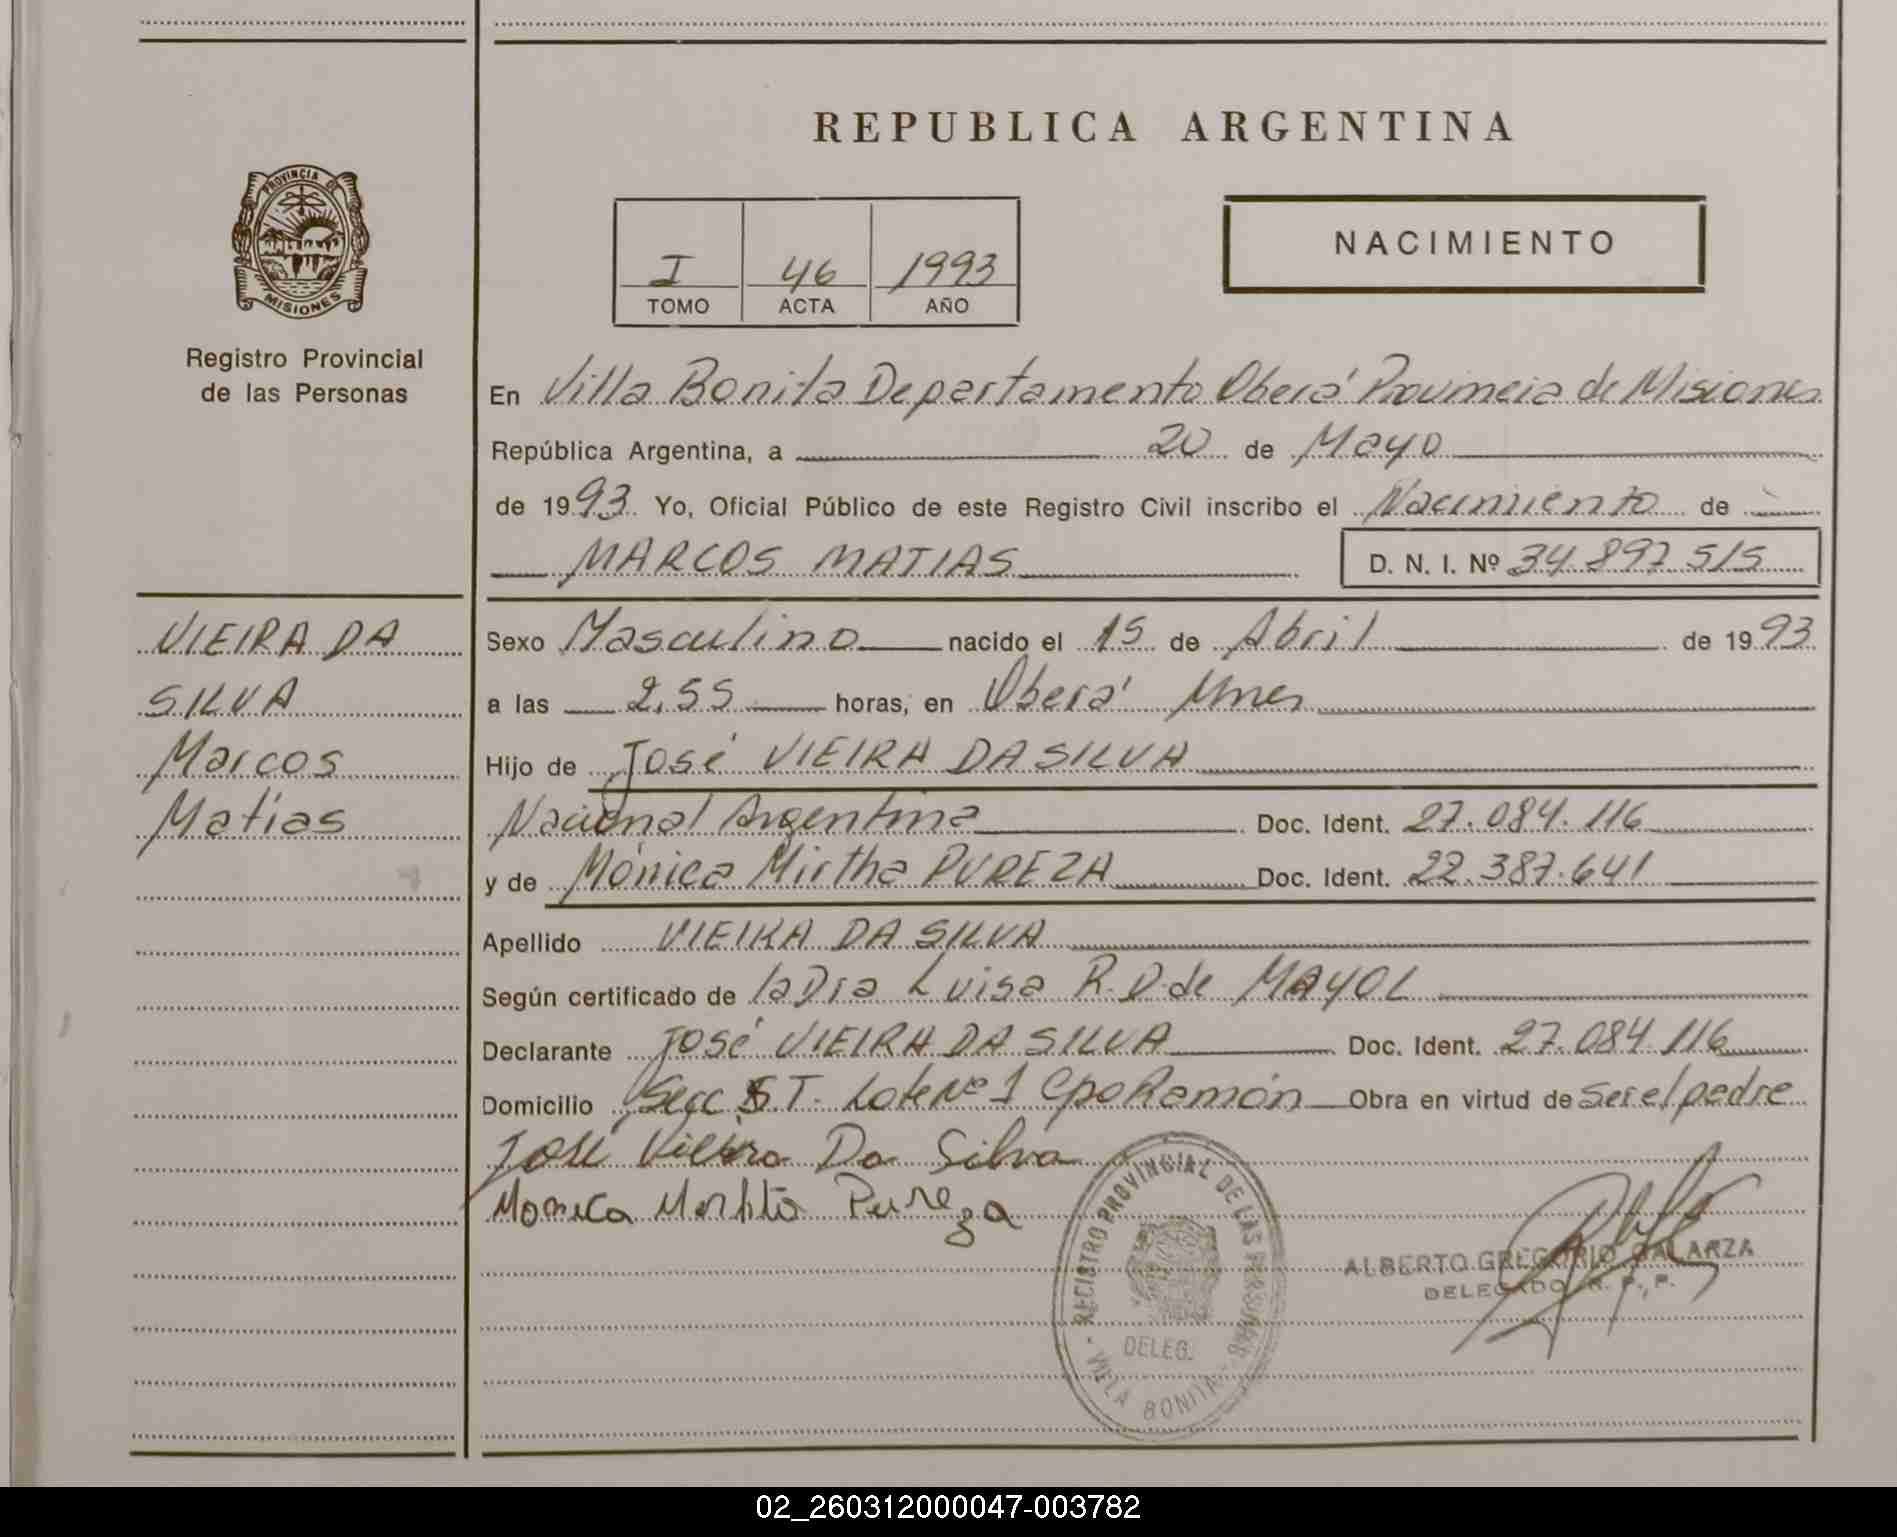 REPUBLICA ARGENTINA
PROVINCIA DE
MISIONES
Registro Provincial
de las Personas
VIEIRA DA
SILVA
Marcos
Matías
I 46 1993
TOMO ACTA AÑO
NACIMIENTO
En Villa Bonita Departamento Oberá Provincia de Misiones
República Argentina, a 20 de Mayo
de 1993 Yo, Oficial Público de este Registro Civil inscribo el Nacimiento de
MARCOS MATIAS D. N. I. Nº 34.897.515
Sexo Masculino nacido el 15 de Abril de 1993
a las 2,55 horas, en Oberá Mnes
Hijo de José VIEIRA DA SILVA
Nacional Argentina Doc. Ident. 27.084.116
y de Mónica Mirtha PUREZA Doc. Ident. 22.387.641
Apellido VIEIRA DA SILVA
Según certificado de la Dra Luisa R. D. de MAYOL
Declarante José VIEIRA DA SILVA Doc. Ident. 27.084.116
Domicilio Secc T. Lote Nº 1 Cpo Ramón Obra en virtud de ser el padre
José Vieira Da Silva
Monica Pureza
REGISTRO PROVINCIAL DE LAS PERSONAS
DELEG.
VILLA BONITA
ALBERTO GREGORIO GALARZA
DELEGADO R. P. P.
02_260312000047-003782